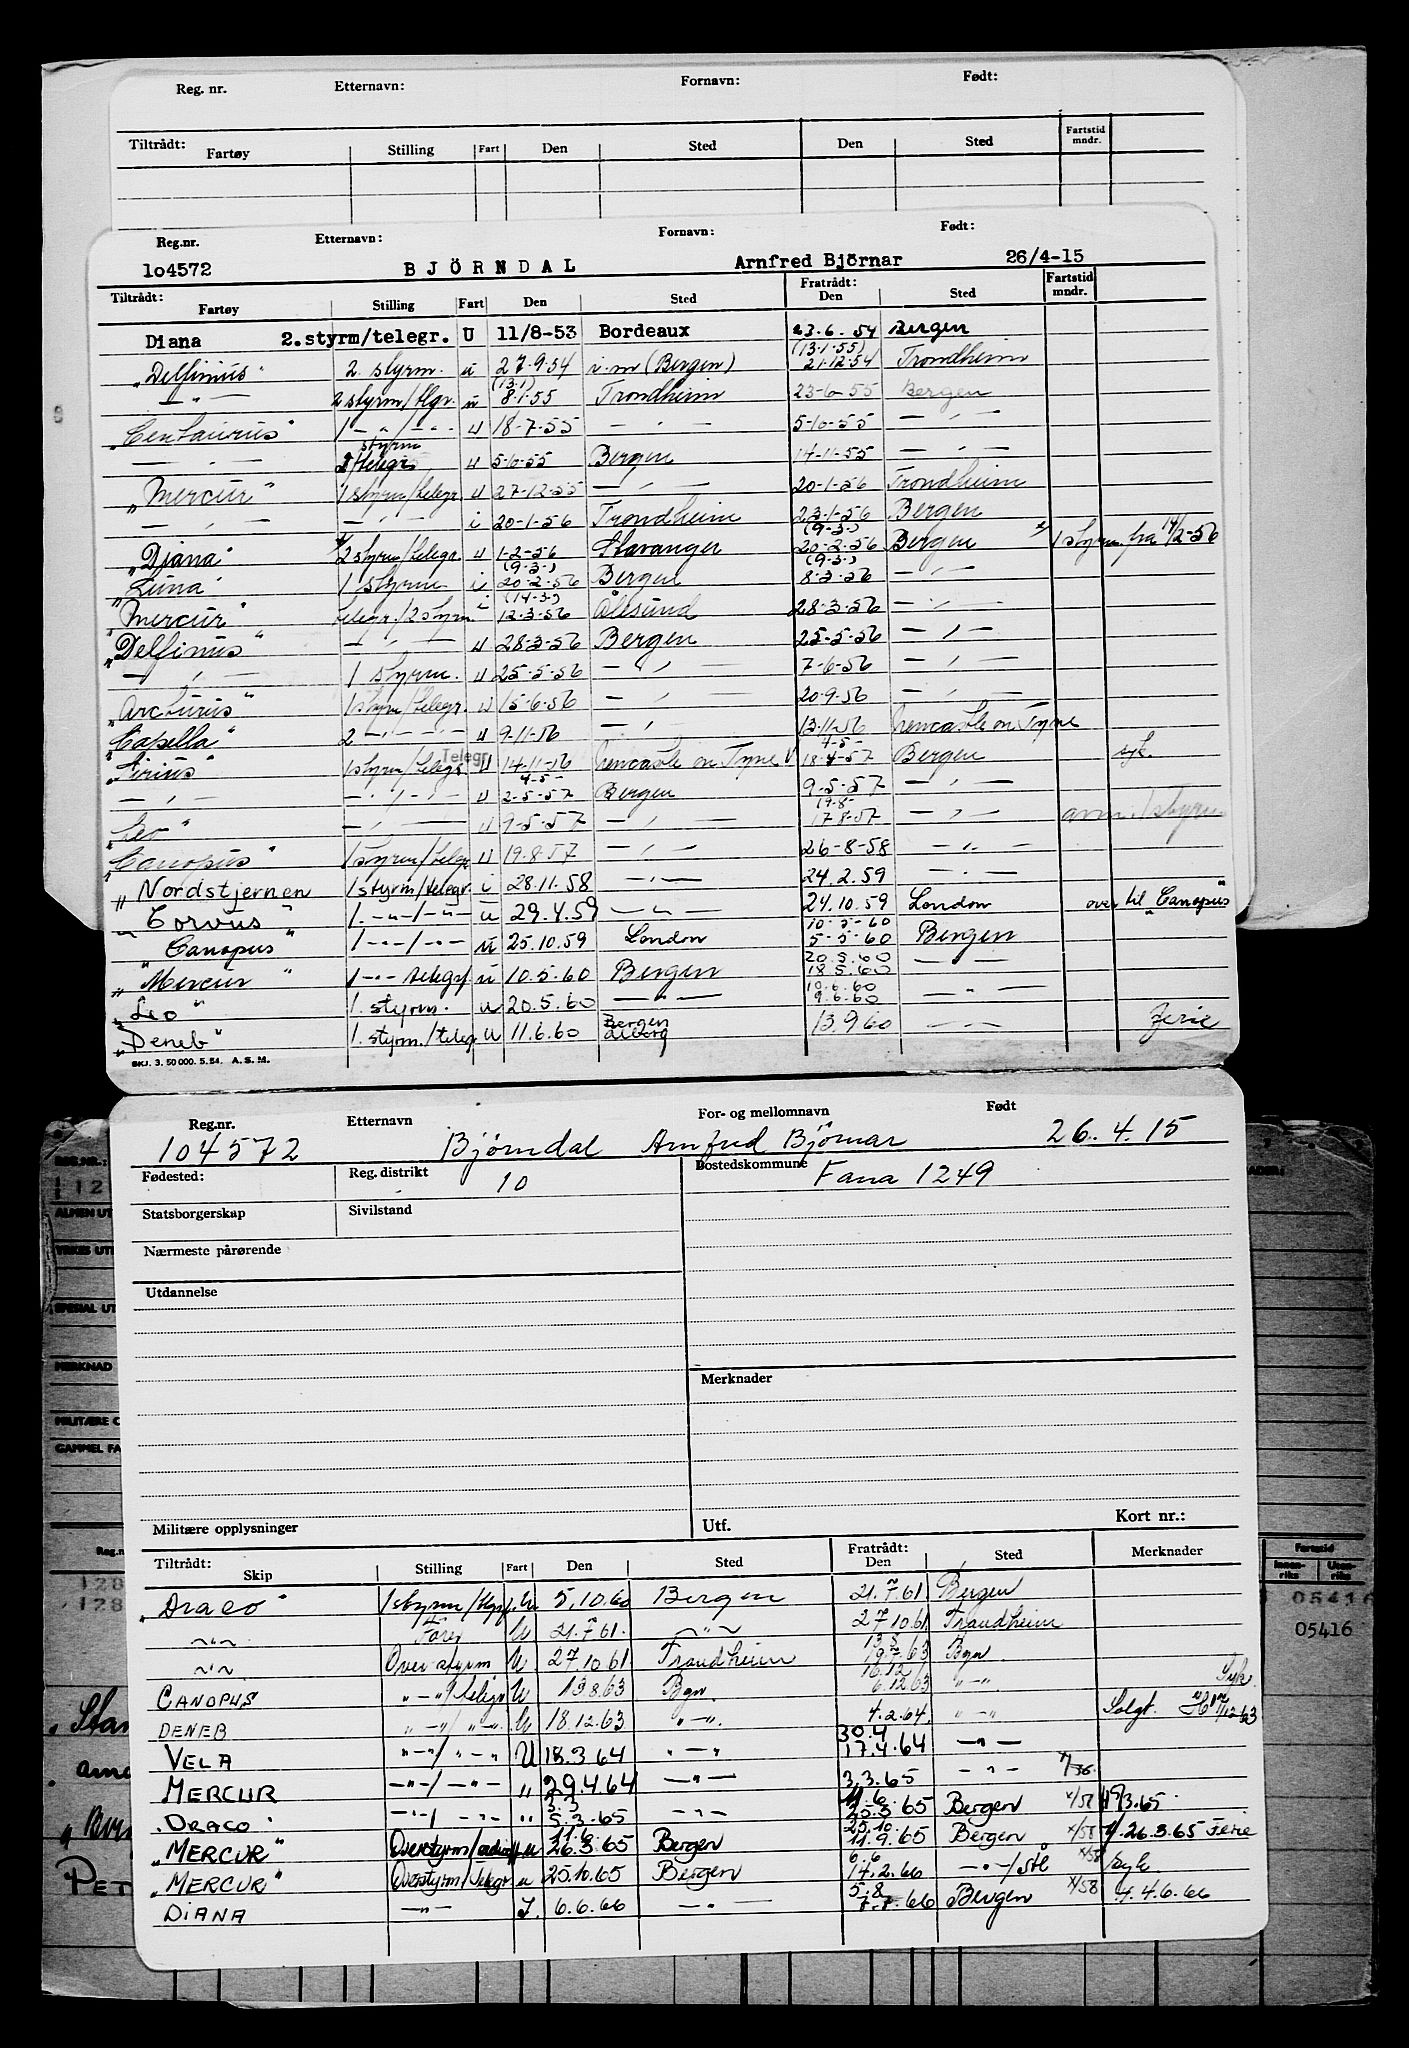 Reg. nr. Etternavn: Fornavn: Født:
Tiltrådt: Fartøy Stilling Fart Den Sted Den Sted Fartstid mndr.
Reg.nr. Etternavn: Fornavn: Født:
104572 BJÖRNDAL Arnfred Björnar 26/4-15
Tiltrådt: Fartøy Stilling Fart Den Sted Fratrådt: Den Sted Fartstid mndr.
Diana 2.styrm/telegr. U 11/8-53 Bordeaux 23.6.54 Bergen
"Delfinus" 2. styrm. u 27.9.54 i.m (Bergen) (13.1.55) 21.12.54 Trondheim
— " — 2 styrm/tlgr. u (13.1) 8.1.55 Trondheim 23-6-55 Bergen
"Centaurus" 1 - " - / - " - u 18-7-55 — " — 5-10-55 — " —
— " — 2 styrm/telegr u 5-10-55 Bergen 14-11-55 — " —
"Mercur" 1 styrm/telegr u 27-12-55 — " — 20-1-56 Trondheim
— " — — " — i 20-1-56 Trondheim 23-1-56 Bergen
"Diana" x/ 2 styrm/telegr. u 1-2-56 Stavanger (9-3-) 20-2-56 Bergen x/ 1 styrm. fra 14/2-56
"Luna" 1 styrm i (9.3.) 20-2-56 Bergen (9.3.) 8-3-56 — " —
"Mercur" telegr./2 styrm i (14.3.) 12-3-56 Ålesund 28-3-56 — " —
"Delfinus" — " — u 28-3-56 Bergen 25-5-56 — " —
— " — 1 styrm. u 25-5-56 — " — 7-6-56 — " —
"Arcturus" 1 styrm/telegr. u 15-6-56 — " — 20-9-56 — " —
"Capella" 2 — " — u 9-11-56 — " — 13-11-56 Newcastle on Tyne
"Sirius" 1 styrm/telegr Telegr u 14-11-56 Newcastle on Tyne 4-5- 18-4-57 Bergen syk.
— " — — " — u 4-5- 2-5-57 Bergen 9-5-57 — " —
"Leo" — " — u 9-5-57 — " — 19-8- 17-8-57 — " — 1 styrm
"Canopus" 1 styrm/telegr u 19.8.57 — " — 26-8-58 — " —
"Nordstjernen 1 styrm/telegr. i 28.11.58 — " — 24.2.59 — " —
"Corvus" 1. - " - / - " - u 29.4.59 — " — 24.10.59 London over til "Canopus"
"Canopus" 1 - " - / - " - u 25.10.59 London 10-5-60 5-5-60 Bergen
"Mercur" 1 - " - telegr. u 10.5.60 Bergen 20.5.60 18.5.60 — " —
"Leo" 1. styrm. u 20.5.60 — " — 10.6.60 9.6.60 — " —
"Deneb" 1. styrm./telegr u 11.6.60 Bergen 13.9.60 — " — Ferie
SKJ. 3. 50 000. 5. 54. A. S. M.
Reg.nr. Etternavn For- og mellomnavn Født
104572 Bjørndal Arnfred Bjørnar 26.4.15
Fødested: Reg. distrikt 10 Bostedskommune Fana 1249
Statsborgerskap Sivilstand
Nærmeste pårørende
Utdannelse
Merknader
Militære opplysninger Utf. Kort nr.:
Tiltrådt: Skip Stilling Fart Den Sted Fratrådt: Den Sted Merknader
"Draco" 1 styrm/tlgr. U 5.10.60 Bergen 21.7.61 Bergen
— " — Fører U 21.7.61. — " — 27.10.61 Trondheim
— " — Overstyrm U. 27.10.61 Trondheim 19.7.63 Bgn
CANOPUS " - " / telegr U 19.8.63 Bgn. 16.12 6.12.63 " - " Syk
DENEB " - " / " - " U 18.12.63 " - " 4.2.64. " - " Solgt.
VELA " - " / " - " U 18.3.64 " - " 30.4 17.4.64 — " —
MERCUR — " — / — " — " 29.4.64 — " — 3.3.65 — " —
DRACO. - " - / - " - " 3.3 5.3.65 — " — 11.6 25.3.65 Bergen x/58
"MERCUR" Overstyrm u 11.6 26.3.65 Bergen 25.10 11.9.65 Bergen x/58 26.3.65 Ferie
"MERCUR" Overstyrm/telegr u 25.10.65 Bergen 6.6 14.2.66 — " — x/58 Syk
DIANA — " — I. 6.6.66 — " — 5.8 Bergen x/58 4.6.66
REG.NR.:
MERKNAD
05416
05416
Fartstid
Innenriks Utenriks